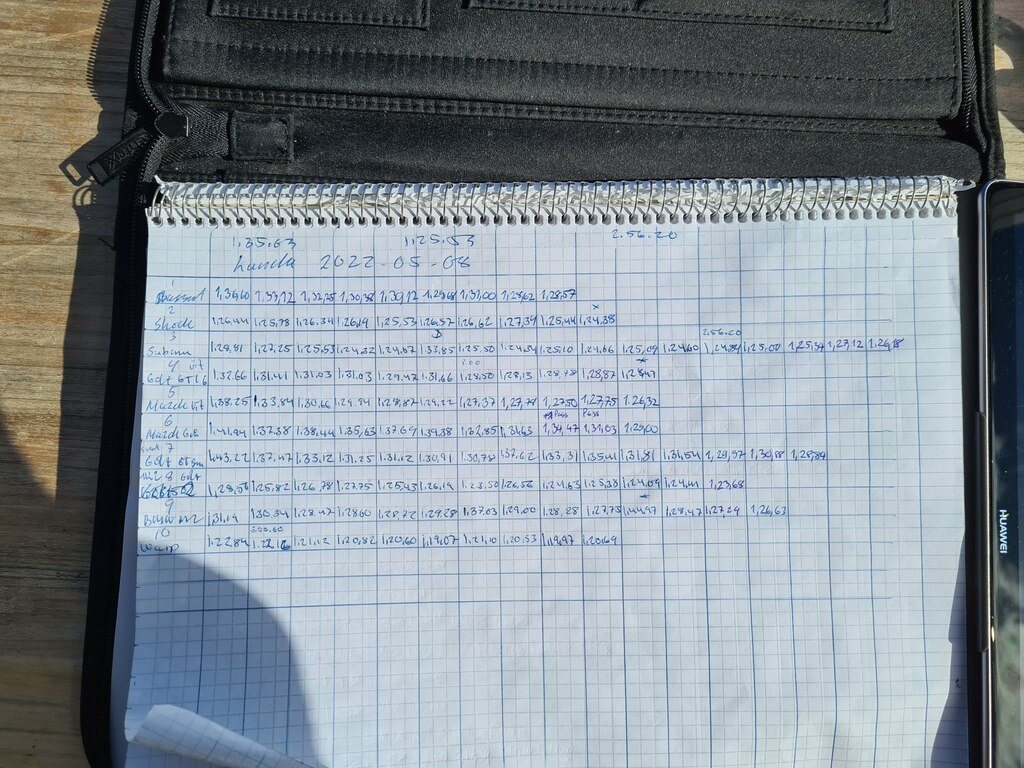 1.35.63 1.25.53 2.56.20
2022-05-08
1
1,33,12 1,32,25 1,30,38 1,30,12 1,29,68 1,31,00 1,28,62 1,28,57
2 x
1.26.44 1.25,78 1.26.34 1.26,19 1,25,53 1,26,57 1,26,62 1,27,39 1,25,44 1,24,38
3 2.56.20
Subaru 1.28,81 1,27,25 1,25,53 1,24,82 1,24,67 1,33,85 1,25,50 1,24,34 1,25,10 1,24,66 1,25,09 1,24,60 1,25,00 1,25,34 1,27,12 1,26,18
4 vit
Golf GTI 6 1.32.66 1.31.41 1.31.03 1.31.03 1.29.47 1.31,66 1,28,50 1,28,13 1,28,78 1,28,87 1,28,47
5
Mazda vit 1,38.25 1,33,84 1,30,66 1,29,94 1,28,87 1,29,22 1,27,37 1,27,78 1,27,50 1,27,75 1,26,32
6 Pass Pass
Mazda 1,37,38 1,38,44 1,35,63 1,37,69 1,39,38 1,32,85 1,31,63 1,34,47 1,31,03 1,29,00
7
Golf 1,43,22 1,37,47 1,33,12 1,31,25 1,31,12 1,30,91 1,30,78 1,32,62 1,33,31 1,35,41 1,31,81 1,31,54 1,29,97 1,30,88 1,28,84
8 Golf
1,28,50 1,25,82 1,26,78 1,27,75 1,25,43 1,26,19 1,23,50 1,26,56 1,24,63 1,25,38 1,24,09 1,24,44 1,23,68
9
1,31,19 1,30,34 1,28,47 1,28,60 1,28,72 1,29,28 1,37,03 1,29,00 1,28,28 1,27,75 1,44,97 1,28,47 1,27,29 1,26,63
10
1.22,84 1,22,16 1,21,12 1,20,82 1,20,60 1,19,07 1,21,10 1,20,53 1,19,97 1,20,69
HUAWEI